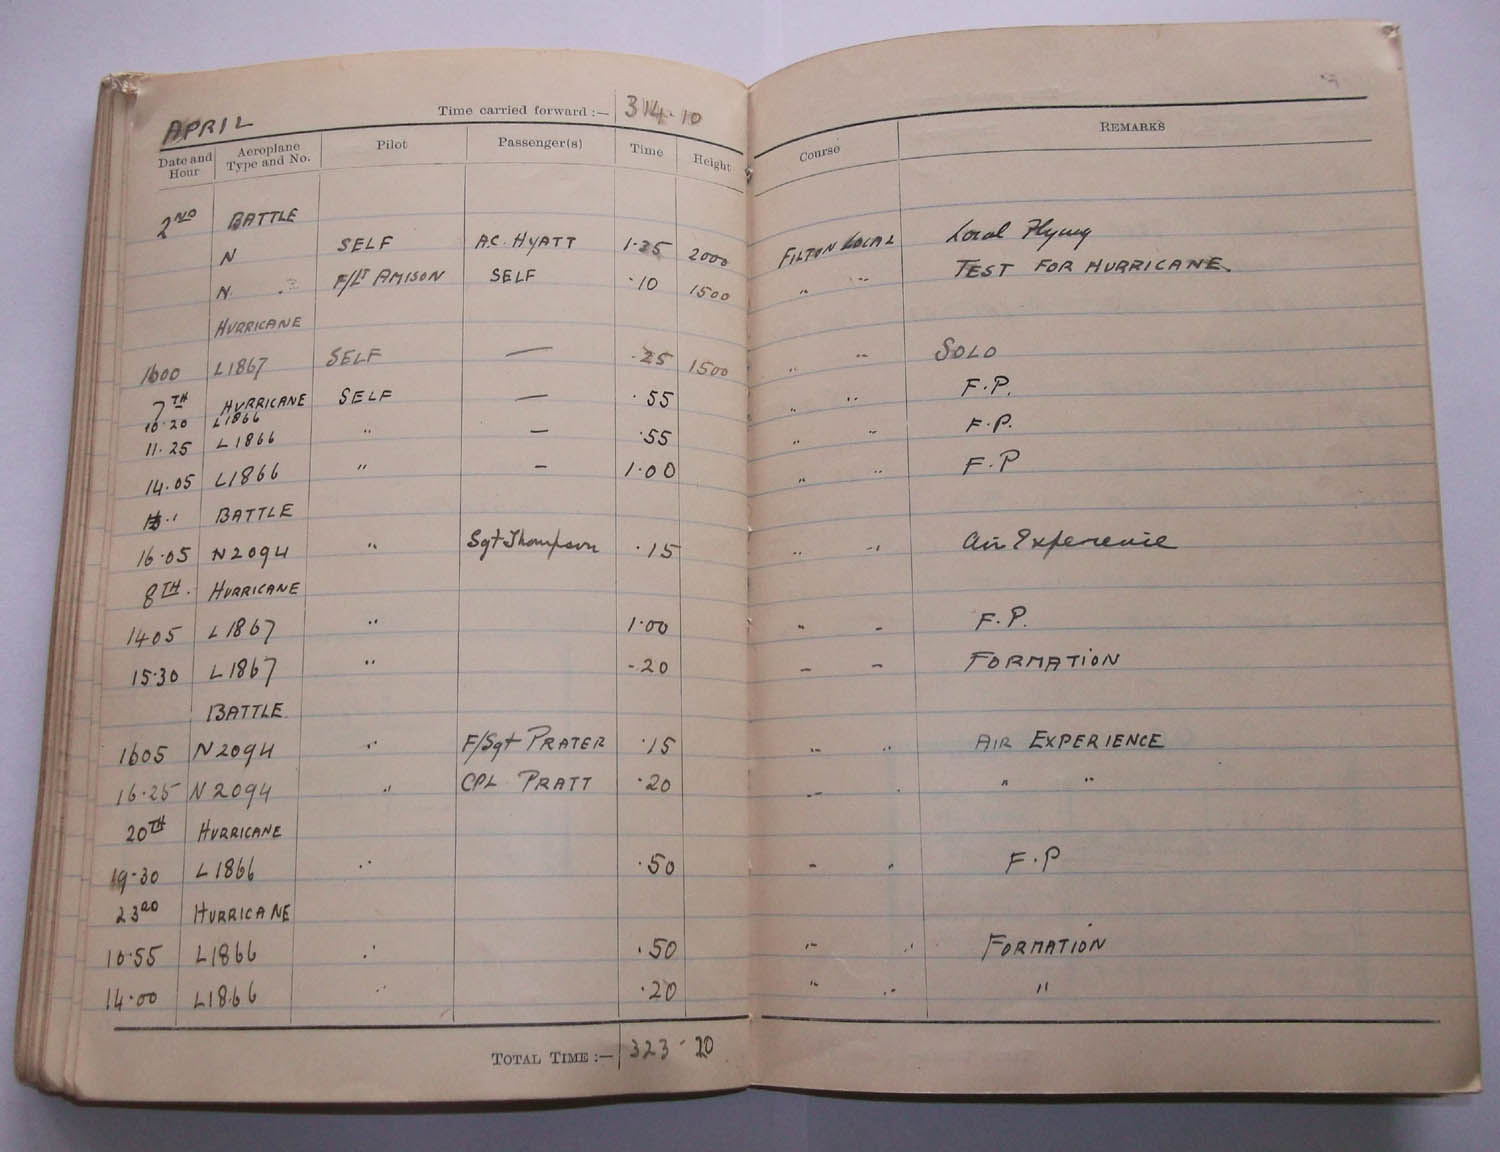 APRIL Time carried forward :— 314·10
Date and Hour Aeroplane Type and No. Pilot Passenger(s) Time Height Course REMARKS
2ND BATTLE
N SELF A.C. HYATT 1·35 2000 FILTON LOCAL Local Flying
N. F/LT AMISON SELF ·10 1500 " " TEST FOR HURRICANE.
HURRICANE
1600 L1867 SELF — ·25 1500 " " SOLO
7TH HURRICANE SELF — ·55 " " F.P.
10·20 L1866
11·25 L1866 " — ·55 " " F.P.
14·05 L1866 " — 1·00 " " F.P
BATTLE
16·05 N2094 " Sgt Thompson ·15 " " Air Experience
8TH. HURRICANE
1405 L1867 " 1·00 " - F.P.
15·30 L1867 " -20 - - FORMATION
BATTLE
1605 N2094 " F/Sgt PRATER ·15 " " AIR EXPERIENCE
16·25 N2094 " CPL PRATT ·20 " " "
20TH HURRICANE
19·30 L1866 " ·50 - " F.P
23RD HURRICANE
10·55 L1866 " ·50 " " FORMATION
14·00 L1866 " ·20 " " "
TOTAL TIME :— 323·20